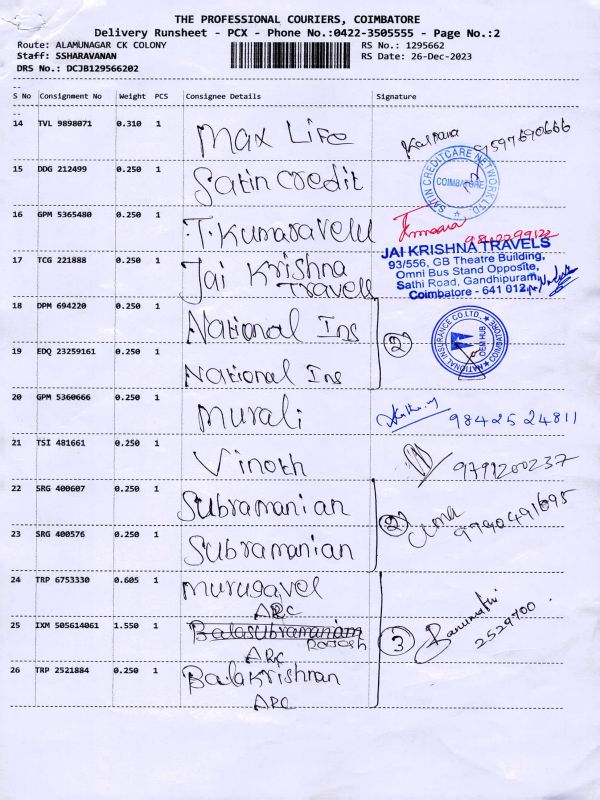 THE PROFESSIONAL COURIERS, COIMBATORE
Delivery Runsheet - PCX - Phone No.:0422-3505555 - Page No.:2
Route: ALAMUNAGAR CK COLONY RS No.: 1295662
Staff: SSHARAVANAN RS Date: 26-Dec-2023
DRS No.: DCJB129566202
S No Consignment No Weight PCS Consignee Details Signature
14 TVL 9898071 0.310 1 Max Life Kalpana
15 DDG 212499 0.250 1 Satin credit SATIN CREDITCARE NETWORK LTD COIMBATORE
16 GPM 5365480 0.250 1 T. Kumaravelu
17 TCG 221888 0.250 1 Jai Krishna Travels
JAI KRISHNA TRAVELS
93/556, GB Theatre Building,
Omni Bus Stand Opposite,
Sathi Road, Gandhipuram,
Coimbatore - 641 012.
18 DPM 694220 0.250 1 National Ins 2 NATIONAL INSURANCE CO.LTD. COIMBATORE OEM HUB
19 EDQ 23259161 0.250 1 National Ins
20 GPM 5360666 0.250 1 Murali 98425 24811
21 TSI 481661 0.250 1 Vinoth 9791200237
22 SRG 400607 0.250 1 Subramanian 2 Uma 9790491695
23 SRG 400576 0.250 1 Subramanian
24 TRP 6753330 0.605 1 Murugavel
ARC
25 IXM 505614061 1.550 1 Balasubramaniam Rajesh 3 Banumathi 2529700
ARC
26 TRP 2521884 0.250 1 Balakrishnan
ARC